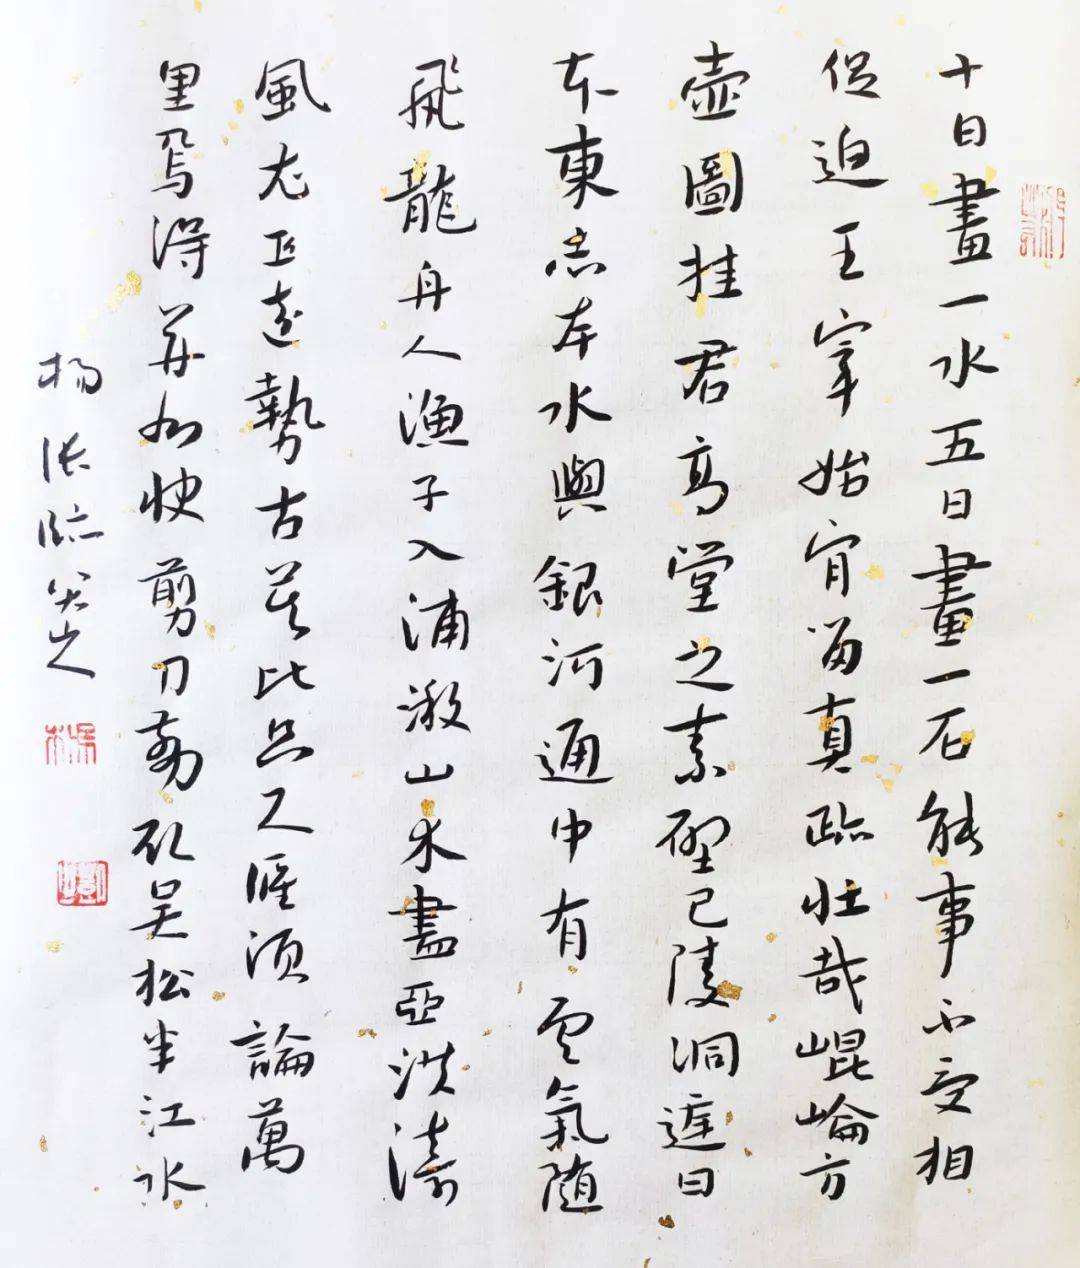 十日畫一水五日畫一石能事不受相
促迫王宰始肯留真跡壯哉崐崘方
壺圖挂君高堂之素壁巴陵洞庭日
本東赤岸水與銀河通中有雲氣隨
飛龍舟人漁子入浦漵山木盡亞洪濤
風尤工遠勢古莫比咫尺應須論萬
里焉得并州快剪刀剪取吳松半江水
楊臨八大